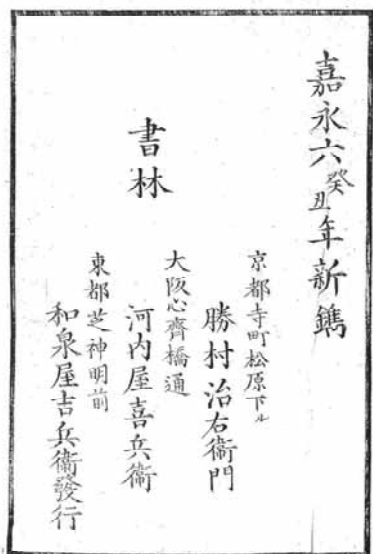 嘉永六癸丑年新鐫
書林
京都寺町松原下ル
勝村治右衞門
大阪心齊橋通
河内屋喜兵衞
東都芝神明前
和泉屋吉兵衞發行